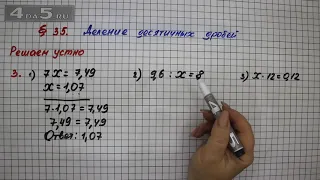 4DA5.RU
§ 35. Деление десятичных дробей
Решаем устно
3. 1) 7x = 7,49 2) 9,6 : x = 8 3) x · 12 = 0,12
x = 1,07
7 · 1,07 = 7,49
7,49 = 7,49
Ответ: 1,07